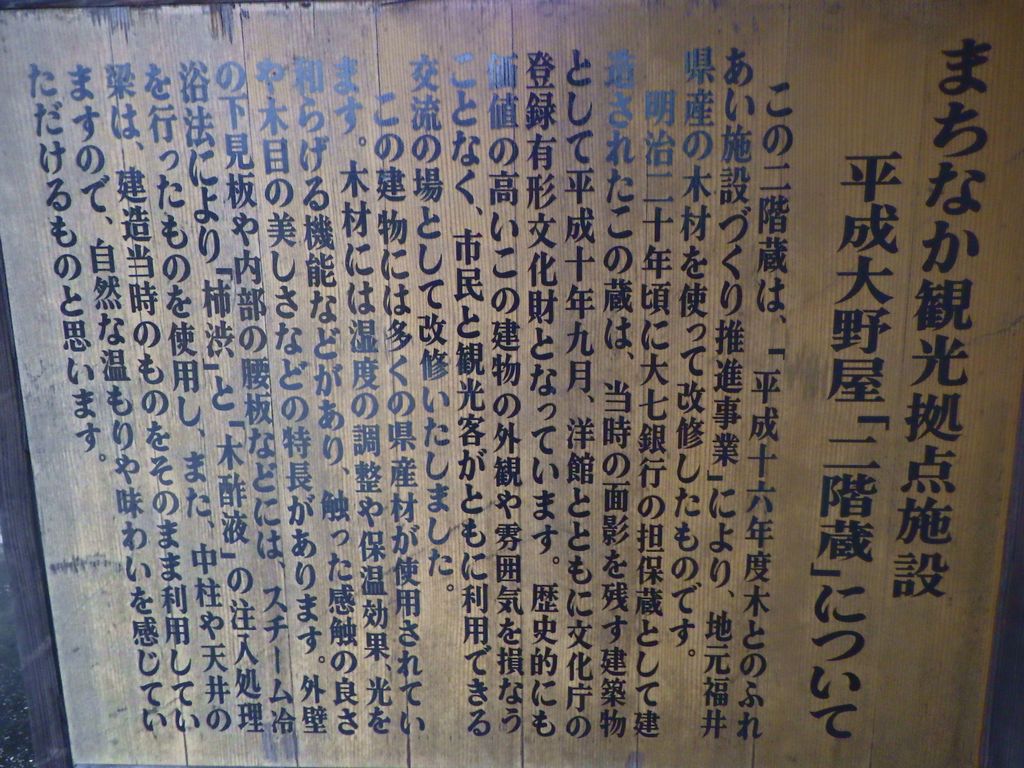 まちなか観光拠点施設
平成大野屋「二階蔵」について
この二階蔵は、「平成十六年度木とのふれ
あい施設づくり推進事業」により、地元福井
県産の木材を使って改修したものです。
明治二十年頃に大七銀行の担保蔵として建
造されたこの蔵は、当時の面影を残す建築物
として平成十年九月、洋館とともに文化庁の
登録有形文化財となっています。歴史的にも
価値の高いこの建物の外観や雰囲気を損なう
ことなく、市民と観光客がともに利用できる
交流の場として改修いたしました。
この建物には多くの県産材が使用されてい
ます。木材には湿度の調整や保温効果、光を
和らげる機能などがあり、触った感触の良さ
や木目の美しさなどの特長があります。外壁
の下見板や内部の腰板などには、スチーム冷
浴法により「柿渋」と「木酢液」の注入処理
を行ったものを使用し、また、中柱や天井の
梁は、建造当時のものをそのまま利用してい
ますので、自然な温もりや味わいを感じてい
ただけるものと思います。